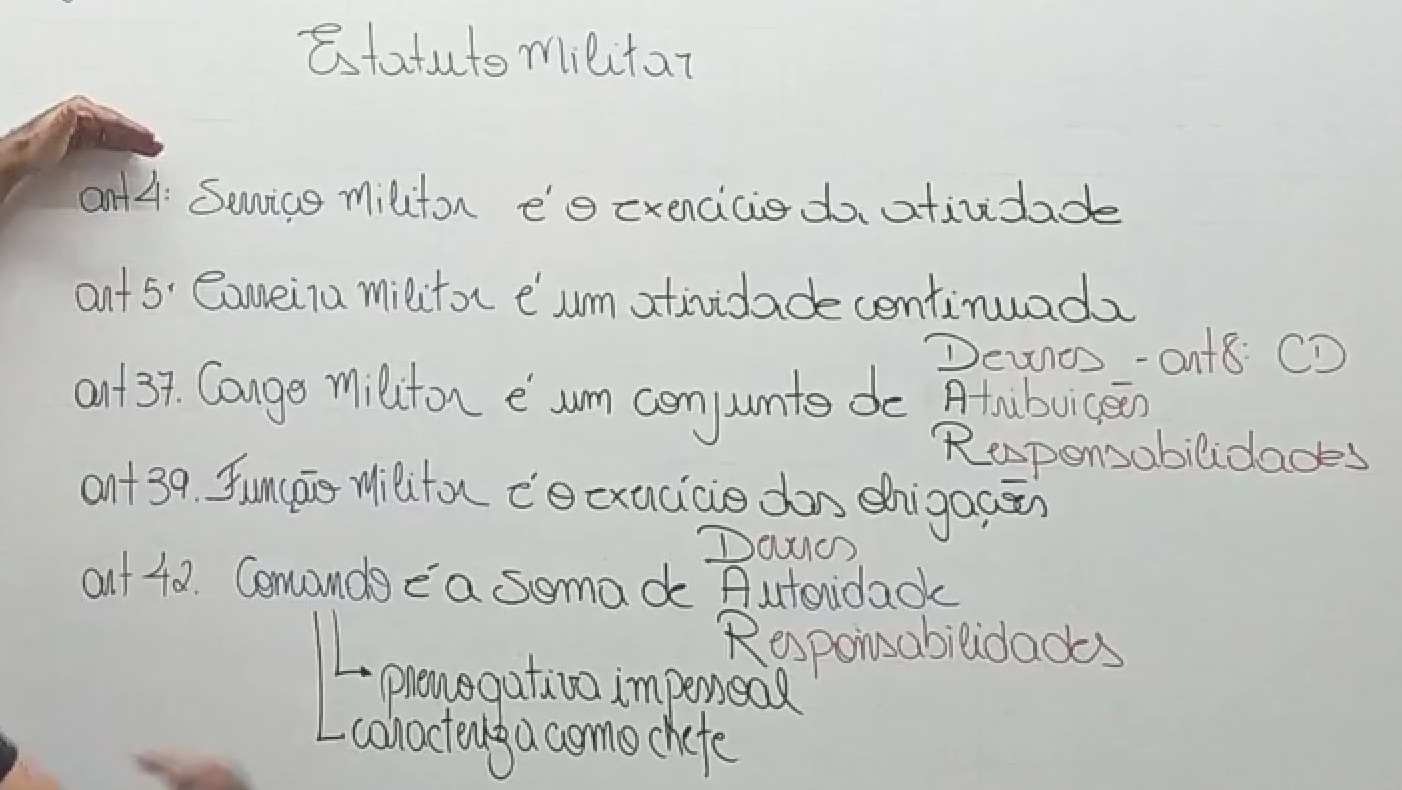 Estatuto Militar
art 4: Serviço Militar é o exercício da atividade
art 5. Carreira Militar é um atividade continuada
Deveres - art 8: CD
art 37. Cargo Militar é um conjunto de Atribuições
Responsabilidades
art 39. Função Militar é o exercício das obrigações
Deveres
art 42. Comando é a soma de Autoridade
Responsabilidades
prerrogativa impessoal
caracteriza como chefe